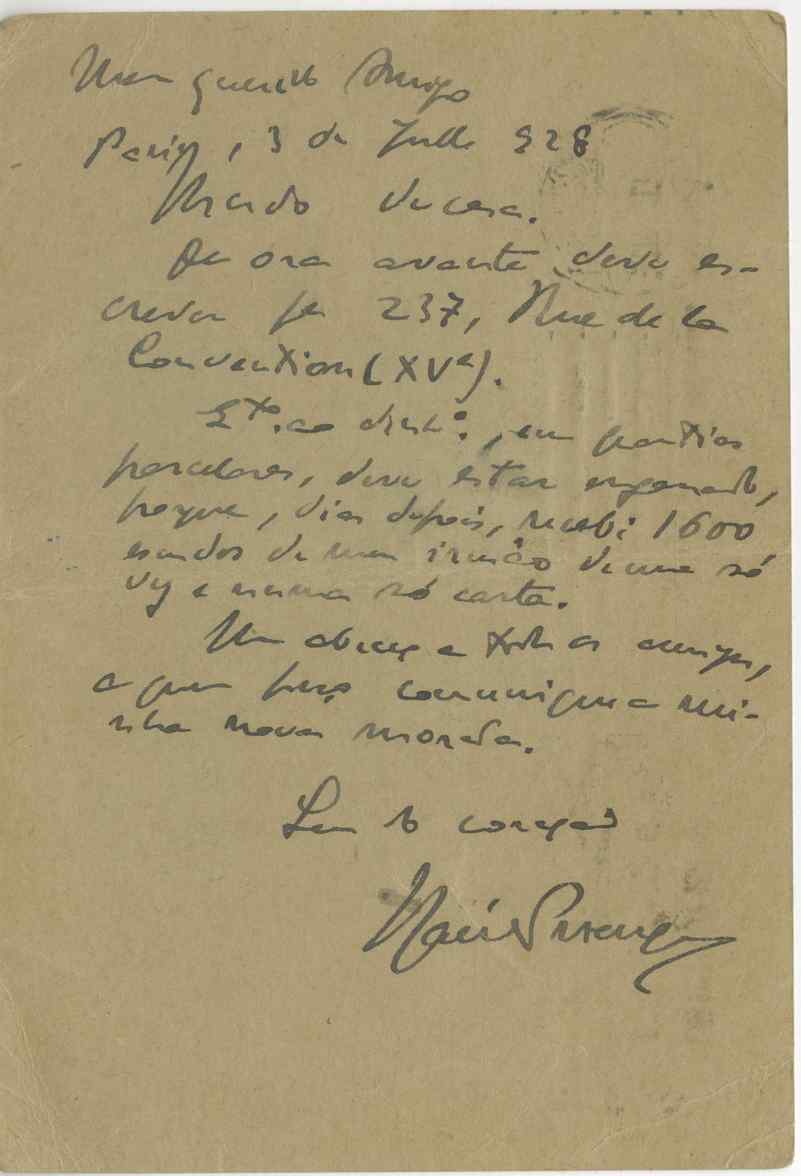 Meu querido Amigo
Paris, 3 de Julho 928
Mudo de casa.
De ora avante deve es-
crever pa 237, Rue de la
Convention (XVe).
Qto. ao dinho., em quantias
parcelares, deve estar enganado,
porque, dias depois, recebi 1600
escudos de meu irmão duma só
vez e numa só carta.
Um abraço a todos os amigos,
a quem peço comunique a mi-
nha nova morada.
Seu do coração